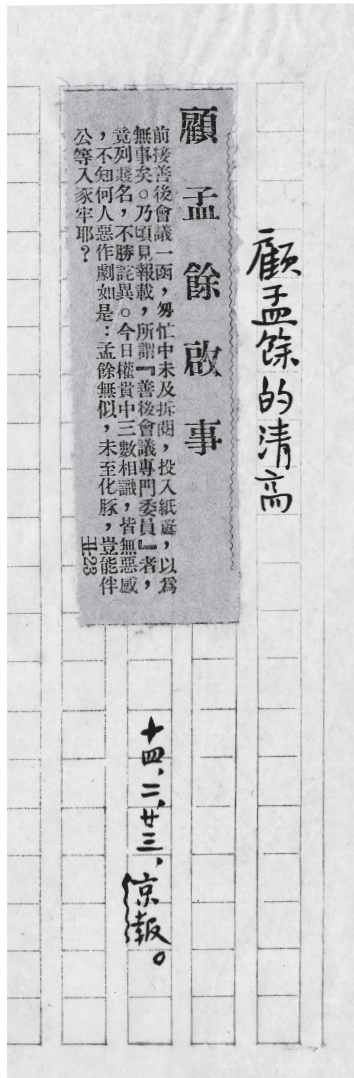 顧孟餘的清高
顧孟餘啟事
前接善後會議一函，匆忙中未及拆閱，投入紙簍，以為
無事矣。乃頃見報載，所謂『善後會議專門委員』者，
竟列賤名，不勝詫異。今日權貴中三數相識，皆無惡感
，不知何人惡作劇如是：孟餘無似，未至化豚，豈能伴
公等入豕牢耶？
丑-23
十四、二、廿三、京報。